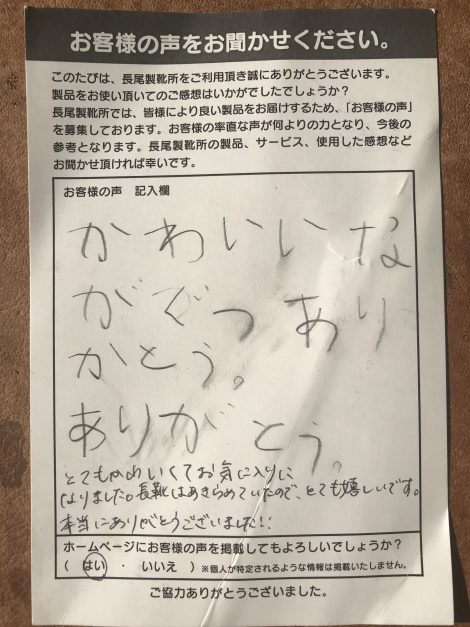 お客様の声をお聞かせください。
このたびは、長尾製靴所をご利用頂き誠にありがとうございます。
製品をお使い頂いてのご感想はいかがでしたでしょうか?
長尾製靴所では、皆様により良い製品をお届けするため、「お客様の声」
を募集しております。お客様の率直な声が何よりの力となり、今後の
参考となります。長尾製靴所の製品、サービス、使用した感想など
お聞かせ頂ければ幸いです。
お客様の声 記入欄
かわいいな
がぐつあり
かとう。
ありがとう。
とてもかわいくてお気に入りに
なりました。長靴はあきらめていたので、とても嬉しいです。
本当にありがとうございました!!
ホームページにお客様の声を掲載してもよろしいでしょうか?
( はい ・ いいえ ) ※個人が特定されるような情報は掲載いたしません。
ご協力ありがとうございました。